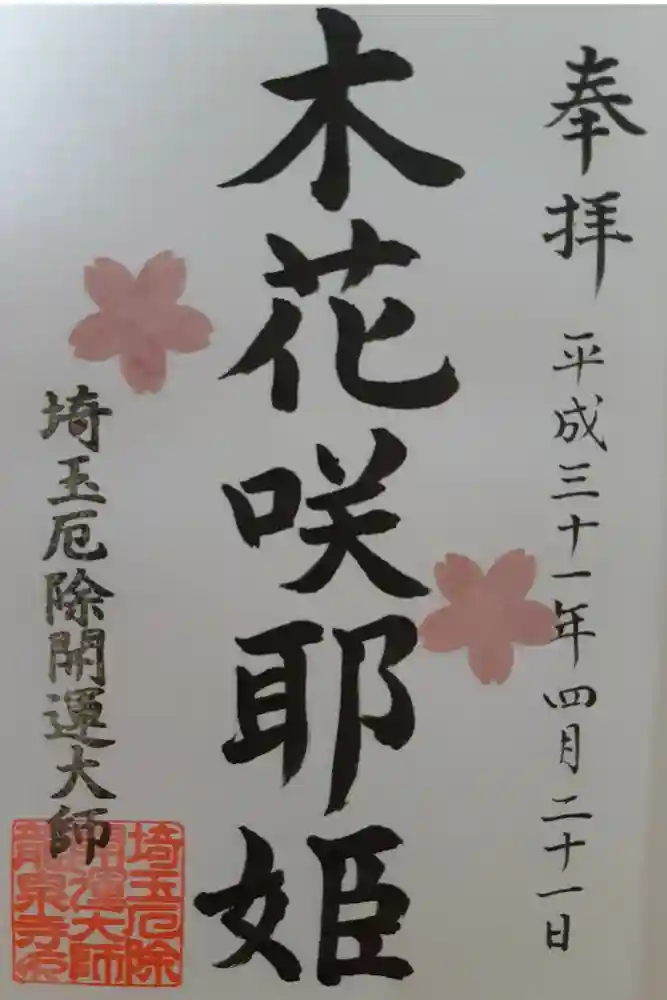 奉拝 平成三十一年四月二十一日
木花咲耶姫
埼玉厄除開運大師
埼玉厄除
開運大師
龍泉寺印